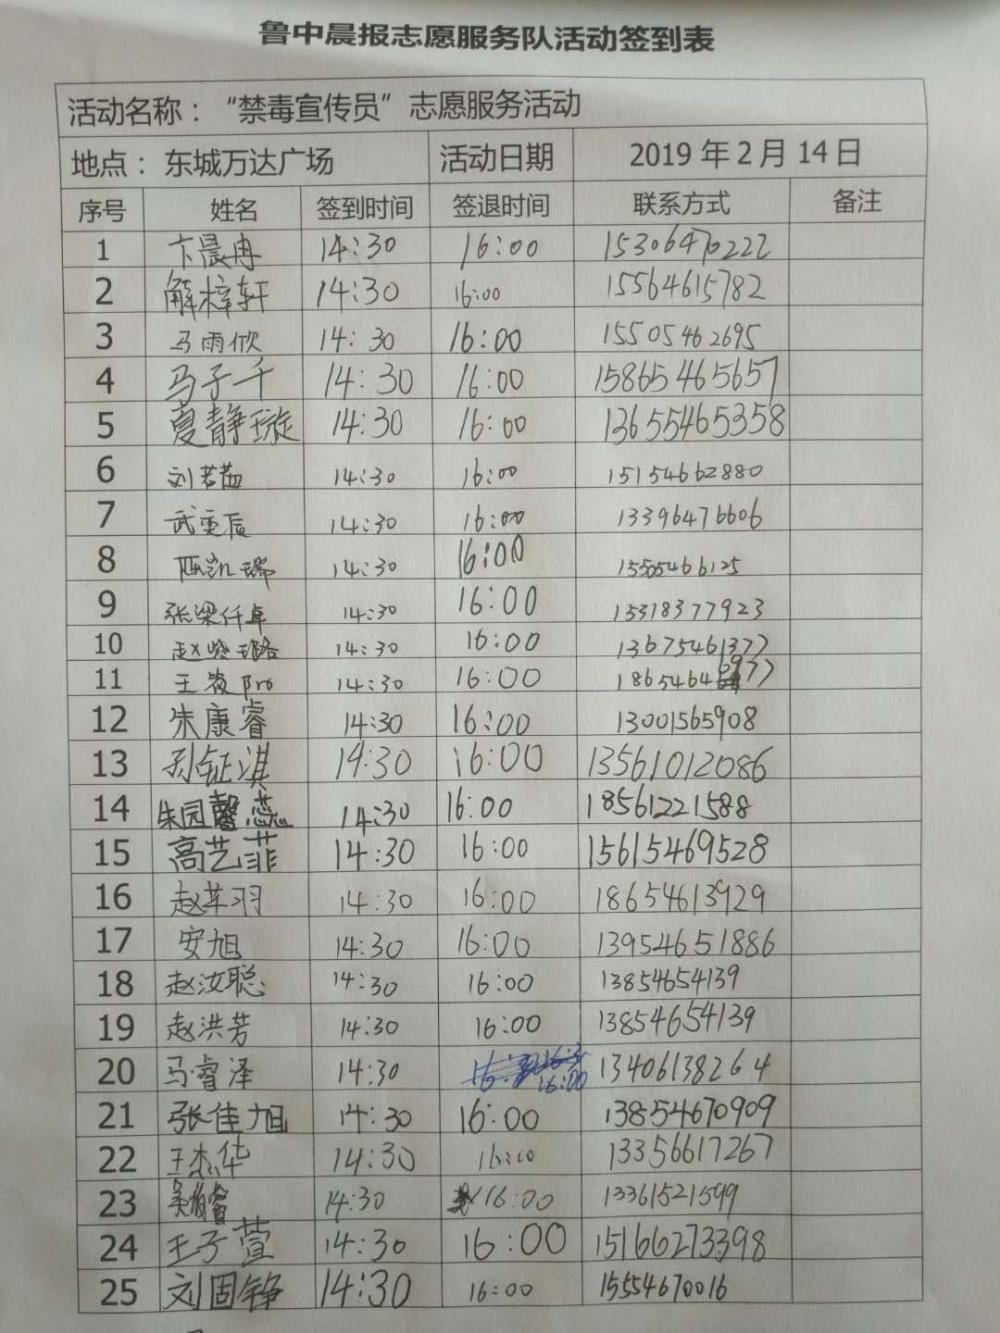 鲁中晨报志愿服务队活动签到表
活动名称：“禁毒宣传员”志愿服务活动
地点：东城万达广场 活动日期 2019年2月14日
序号 姓名 签到时间 签退时间 联系方式 备注
1 卞晨冉 14:30 16:00 15306470222
2 解梓轩 14:30 16:00 15564615782
3 马雨欣 14:30 16:00 15505462695
4 马子千 14:30 16:00 15865465657
5 夏静璇 14:30 16:00 13655465358
6 刘若茜 14:30 16:00 15154662880
7 14:30 16:00 13396476606
8 陈凯瑞 14:30 16:00 15505466125
9 张梁仟卓 14:30 16:00 15318377923
10 14:30 16:00 13675461377
11 14:30 16:00
12 朱康睿 14:30 16:00 13001565908
13 孙钲淇 14:30 16:00 13561012086
14 朱园馨蕊 14:30 16:00 18561221588
15 高艺菲 14:30 16:00 15615469528
16 赵苹羽 14:30 16:00 18654613929
17 安旭 14:30 16:00 13954651886
18 赵汝聪 14:30 16:00 13854654139
19 赵洪芳 14:30 16:00 13854654139
20 马睿泽 14:30 16:00 13406138264
21 张佳旭 14:30 16:00 13854670909
22 王杰华 14:30 16:00 13356617267
23 14:30 16:00 13361521599
24 王子萱 14:30 16:00 15166273398
25 刘固铮 14:30 16:00 15554670016